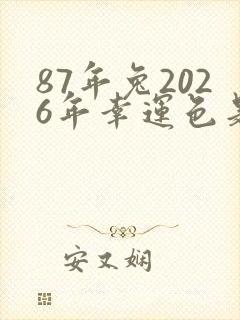 87年兔202
6年幸运色是
安又娴